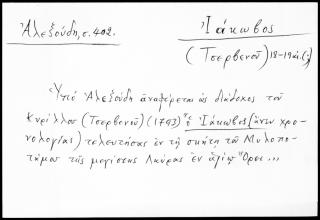 Ἀλεξούδη, σ. 402.
Ἰάκωβος
(Τσερβενοῦ) 18-19 αἰ. (;)
Ὑπὸ Ἀλεξούδη ἀναφέρεται ὡς διάδοχος τοῦ
Κυρίλλου (Τσερβενοῦ) (1793) "ὁ Ἰάκωβος (ἄνευ χρο-
νολογίας) τελευτήσας ἐν τῇ σκήτῃ τοῦ Μυλοπο-
τάμου τῆς μεγίστης Λαύρας ἐν ἁγίῳ Ὄρει...